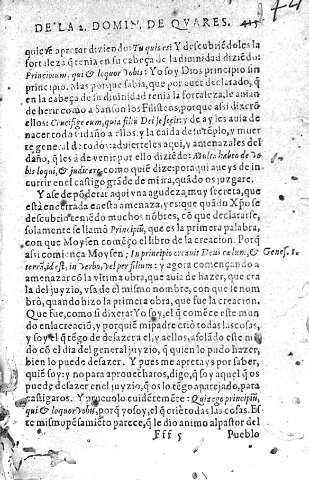 DE LA 2. DOMIN. DE QVARES. 415
quiere apretar diziendo: Tu quis es? Y descubriẽdoles la
fortaleza q̃ tenia en su cabeça de la diuinidad diziẽdo:
Principium, qui & loquor vobis: Yo soy Dios principio sin
principio. Mas porque sabia, que por auer declarado, q̃
en la cabeça de su diuinidad tenia la fortaleza, le auian
de herir como a Sanson los Filisteos; porque assi dixerõ
ellos: Crucifige eum, quia filiũ Dei se fecit; y de ay les auia de
nacer todo su daño a ellos, y la caida de su tẽplo, y muer
te general de todos: aduierteles aqui, y amenazales del
daño, q̃ les à de venir por ello diziẽdo: Multa habeo de vo-
bis loqui, & iudicare, como quiẽ dize: por aqui aueys de in
currir en el castigo grãde de mi ira, quãdo os juzgare.
Y ase de põderar aqui vna agudeza, muy secreta, que
està encerrada en esta amenaza, y es: que quãdo Xp̃o se
descubrio teniẽdo muchos nõbres, cõ que declararse,
solamente se llamò Principiũ, que es la primera palabra,
con que Moysen començò el libro de la creacion. Porq̃
assi comiença Moysen; In principio creauit Deus cælum, &
terrã, id est, in verbo, vel per filium: y agora començando a
amenazar cõ la vltima obra, que auia de hazer, que era
la del juyzio, vsa de el mismo nombre, con que le nom
brò, quando hizo la primera obra, que fue la creacion.
Que fue, como si dixera: Yo soy, el q̃ comẽce este mun
do en la creaciõ, y por quiẽ mi padre criò todas las cosas,
y soy el q̃ tẽgo de desazer a el, y a ellos, asolãdo este ni-
do cõ el dia del general juyzio, q̃ quien lo pudo hazer,
bien lo puede desazer. Y pues me apreta ys por saber,
quiẽ soy: y no para aprouecharos, digo, q̃ soy aquel q̃ os
puede desazer en el juyzio, q̃ os lo tẽgo aparejado, para
castigaros. Y prueuolo euidẽtemẽte: Quia ego principiũ,
qui & loquor vobis, porq̃ yo soy, el q̃ criè todas las cosas. Es
te mismo pẽsamiẽto parece, q̃ le dio animo al pastor del
Genes. 1.
Fff 5 Pueblo